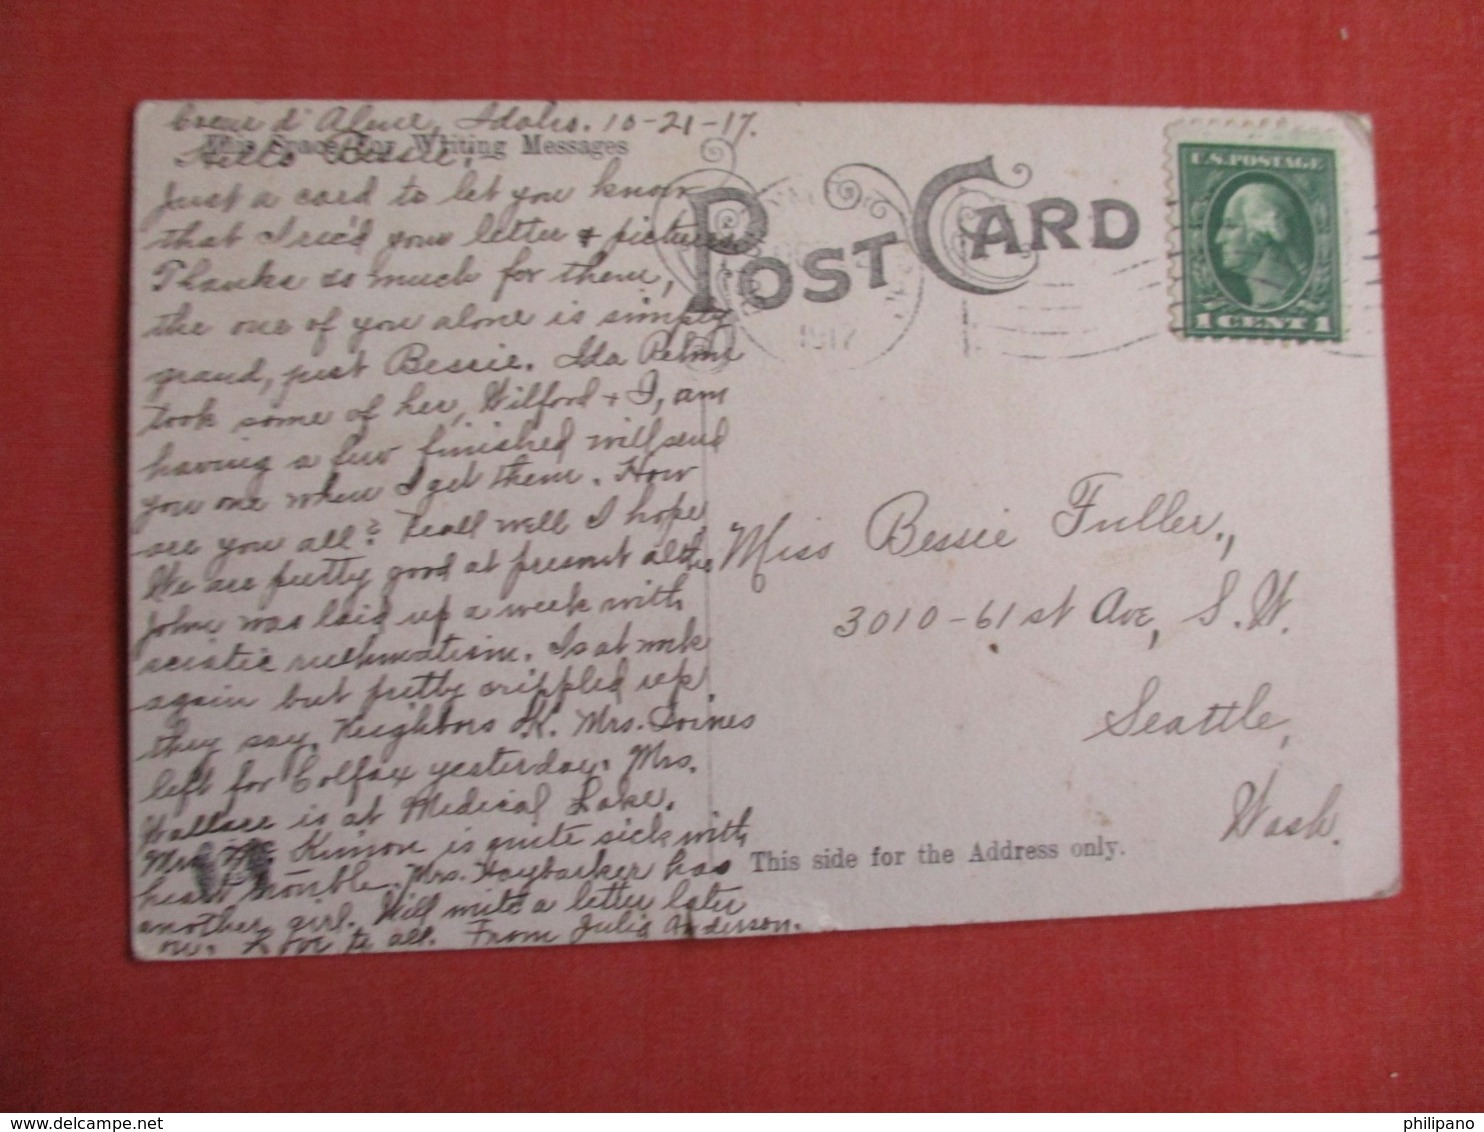 Coeur d' Alene, Idaho. 10-21-17.
This Space For Writing Messages
Hello Bessie.
Just a card to let you know
that I rec'd your letter + pictures
Thanks so much for them,
the one of you alone is simply
grand, just Bessie. Ida
took some of her, Wilford + I, am
having a few finished will send
you one when I get them. How
are you all? all well I hope
We are pretty good at present altho
John was laid up a week with
sciatic ruehmatism. Is at work
again but pretty crippled up
they say. Neighbors O.K. Mrs.
left for Colfax yesterday. Mrs.
Wallace is at Medical Lake.
Mrs. Mc Kinnon is quite sick with
heart trouble. Mrs. Haybarker has
another girl. Will write a letter later
on. Love to all. From Julia Anderson.
POST CARD
1917
U.S. POSTAGE
1 CENT 1
Miss Bessie Fuller,
3010-61 st Ave, S.W.
Seattle,
Wash.
This side for the Address only.
philipano